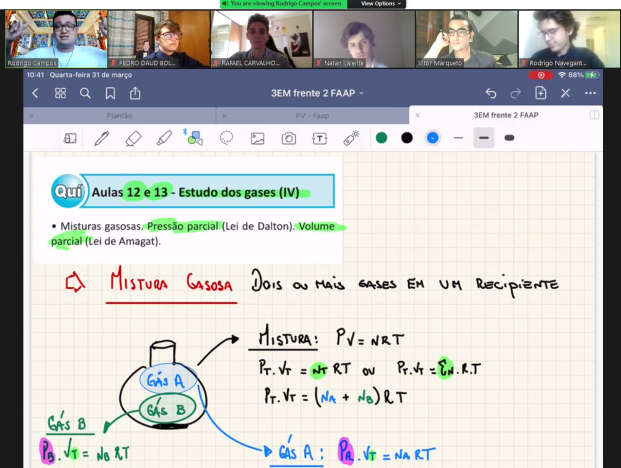 You are viewing Rodrigo Campos' screen
View Options
Rodrigo Campos
PEDRO DAUD BOL...
RAFAEL CARVALHO...
Natan Valente
Vitor Marqueto
Rodrigo Navegant...
10:41 Quarta-feira 31 de março
88%
3EM frente 2 FAAP
Plantão
PV - Faap
3EM frente 2 FAAP
Quí
Aulas 12 e 13 - Estudo dos gases (IV)
• Misturas gasosas. Pressão parcial (Lei de Dalton). Volume
parcial (Lei de Amagat).
⇨ MISTURA GASOSA DOIS OU MAIS GASES EM UM RECIPIENTE
MISTURA: PV = NRT
PT.VT = NT RT OU PT.VT = ΣN.R.T
PT.VT = (NA + NB) RT
GÁS A
GÁS B
GÁS B
PB.VT = NB RT
GÁS A: PA.VT = NA RT